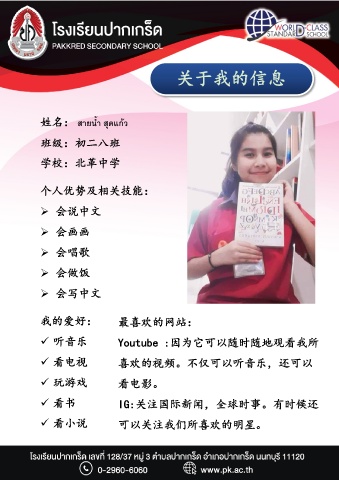 โรงเรียนปากเกร็ด
PAKKRED SECONDARY SCHOOL
WORLD CLASS
STANDARD SCHOOL
关于我的信息
姓名: สายน้ำ สุดแก้ว
班级: 初二八班
学校: 北革中学
个人优势及相关技能:
➢ 会说中文
➢ 会画画
➢ 会唱歌
➢ 会做饭
➢ 会写中文
我的爱好:
✓ 听音乐
✓ 看电视
✓ 玩游戏
✓ 看书
✓ 看小说
最喜欢的网站:
Youtube :因为它可以随时随地观看我所
喜欢的视频。不仅可以听音乐，还可以
看电影。
IG:关注国际新闻，全球时事。有时候还
可以关注我们所喜欢的明星。
โรงเรียนปากเกร็ด เลขที่ 128/37 หมู่ 3 ตำบลปากเกร็ด อำเภอปากเกร็ด นนทบุรี 11120
0-2960-6060 www.pk.ac.th